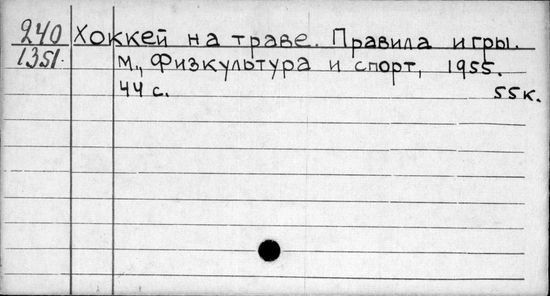 240 Хоккей на траве. Правила игры.
1351. М., Физкультура и спорт, 1955.
44 с. 55к.